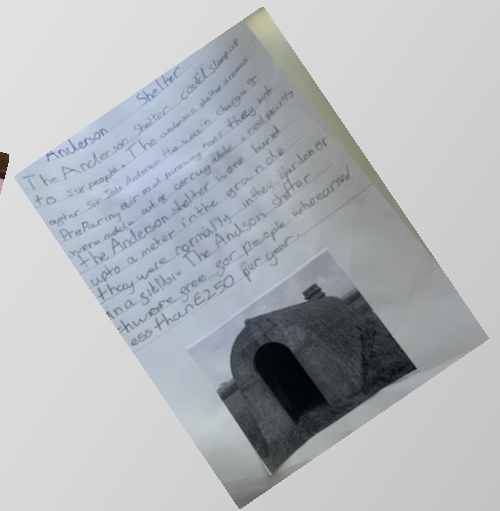 Anderson Shelter
The Anderson Shelter could sleep up
to six people. The anderson shelter
after Sir John Anderson the was in charge of
PrePairing air raid they both
were made out of steel
the Anderson shelter were buried
upto a meter in the
they were normally in their garden or
in a The Andson shelter
free for People who earned
ess than £250 per year.